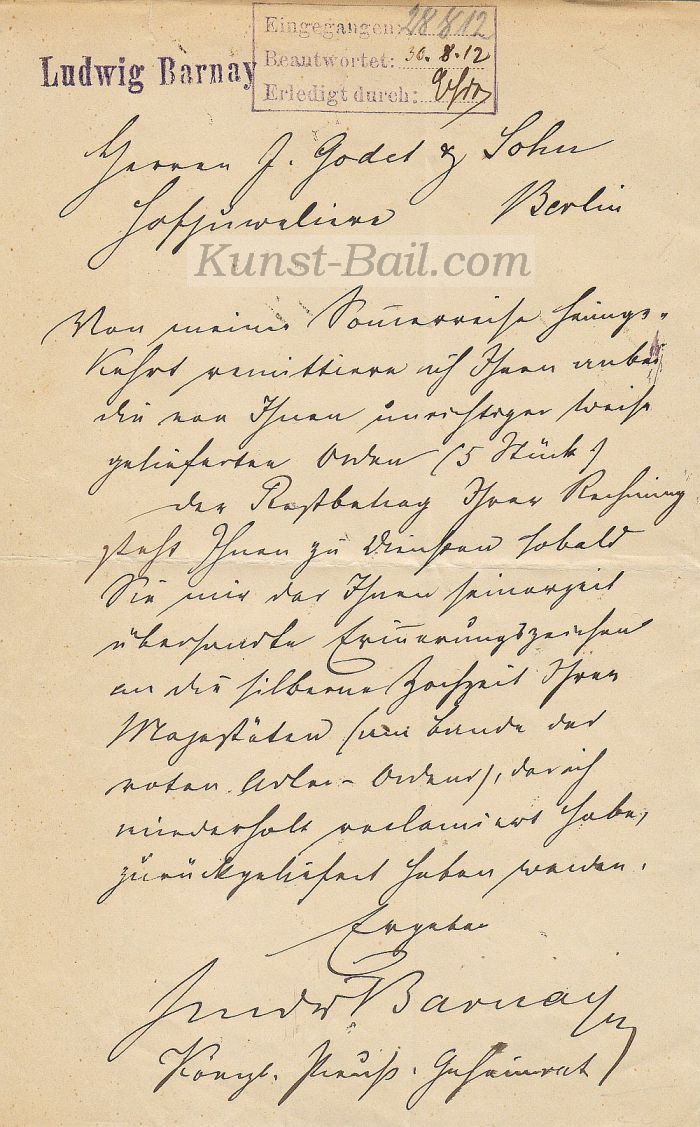 Ludwig Barnay
Eingegangen: 28 8 12
Beantwortet: 30. 8. 12
Erledigt durch:
Herren J. Godet & Sohn
Hofjuweliere Berlin
Kunst-Bail.com
Von meiner Sommerreise heimge-
kehrt remittiere ich Ihnen anbei
die von Ihnen unrichtiger Weise
gelieferten Orden (5 Stück)
Der Restbetrag Ihrer Rechnung
steht Ihnen zu Diensten sobald
Sie mir das Ihnen seinerzeit
übersandte Erinnerungszeichen
an die silberne Hochzeit Ihrer
Majestäten (am Bande des
roten Adler-Ordens), das ich
wiederholt reclamiert habe,
zurückgeliefert haben werden.
Ergeben
Ludw Barnay
Königl. Preuß. Geheimrat